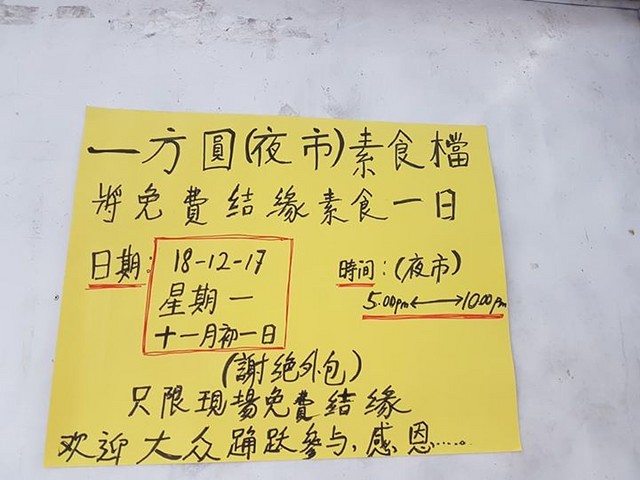 一方圓(夜市)素食檔
將免費结缘素食一日
日期: 18-12-17 時间:(夜市)
星期一 5.00pm⟷10.00pm
十一月初一日
(謝绝外包)
只限現場免費结缘
欢迎大众踊跃參与,感恩.....